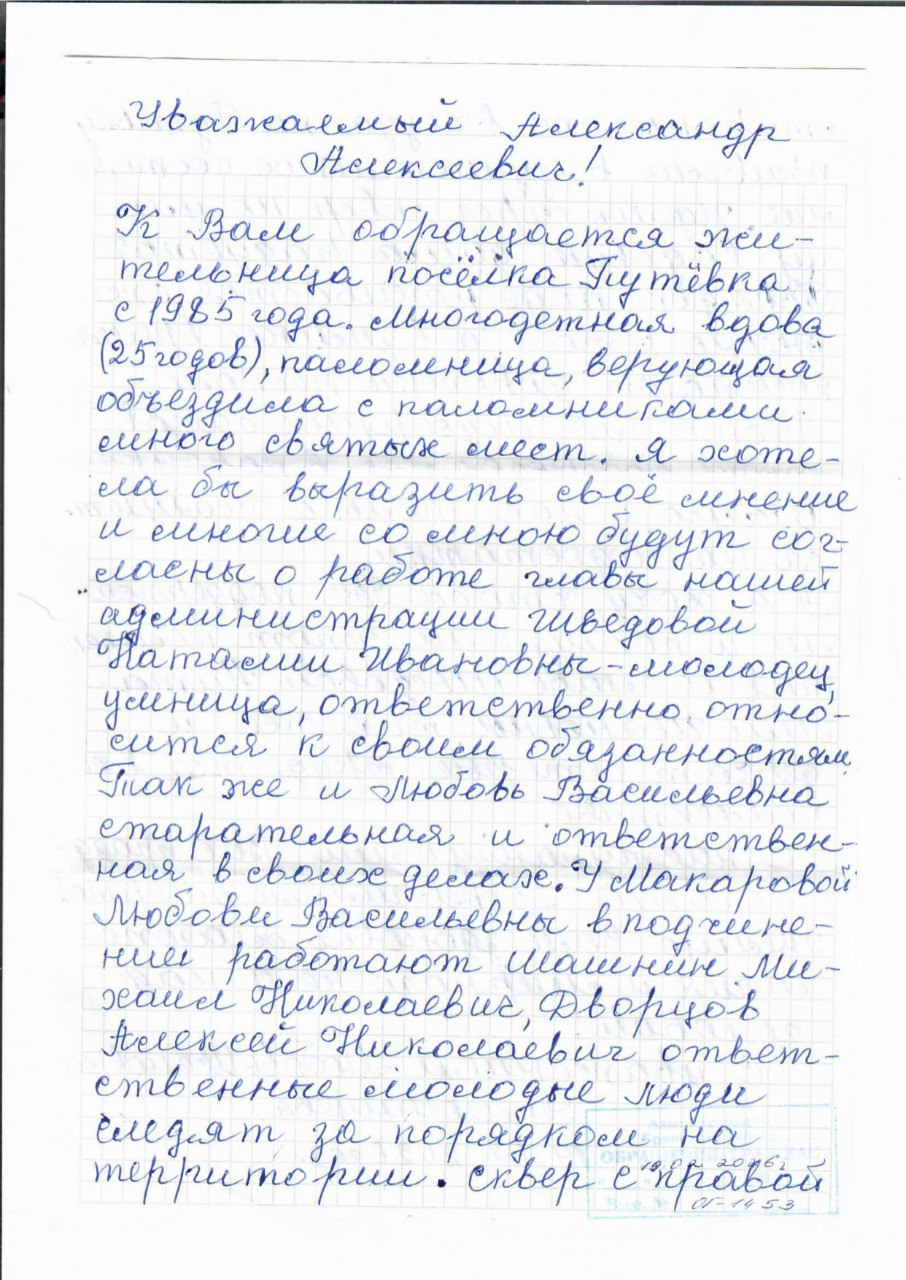 Уважаемый Александр
Алексеевич!
К Вам обращается жи-
тельница посёлка Путёвка
с 1985 года. Многодетная вдова
(25 годов), паломница, верующая
объездила с паломниками
много святых мест. Я хоте-
ла бы выразить своё мнение
и многие со мною будут сог-
ласны о работе главы нашей
администрации Шведовой
Наталии Ивановны - молодец,
умница, ответственно отно-
сится к своим обязанностям.
Так же и Любовь Васильевна
старательная и ответствен-
ная в своих делах. У Макаровой
Любови Васильевны в подчине-
нии работают Шашнин Ми-
хаил Николаевич, Дворцов
Алексей Николаевич ответ-
ственные молодые люди
следят за порядком на
территории. Сквер с правой
ОГ-1453